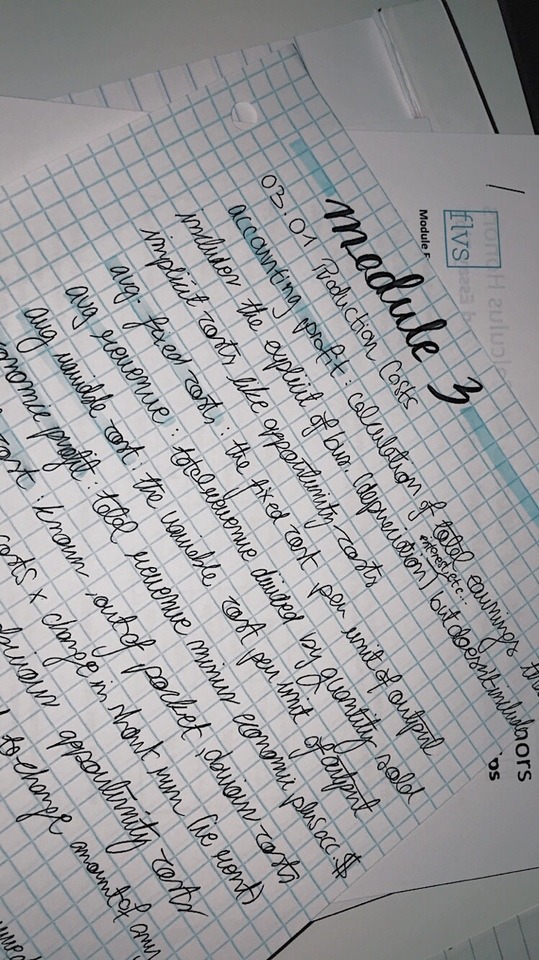 module 3
03.01 Production Costs
accounting profit: calculation of total earnings
includes the explicit of bus. (depreciation, interest, etc...) but doesn't include
implicit costs like opportunity costs
avg. fixed costs: the fixed cost per unit of output
avg revenue: total revenue divided by quantity sold
avg variable cost: the variable cost per unit of output
profit: total revenue minus economic
known, out of pocket, obvious costs
costs x change in short run (ie rent)
obvious opportunity costs
to change amount of any
flvs
Module
nors
os